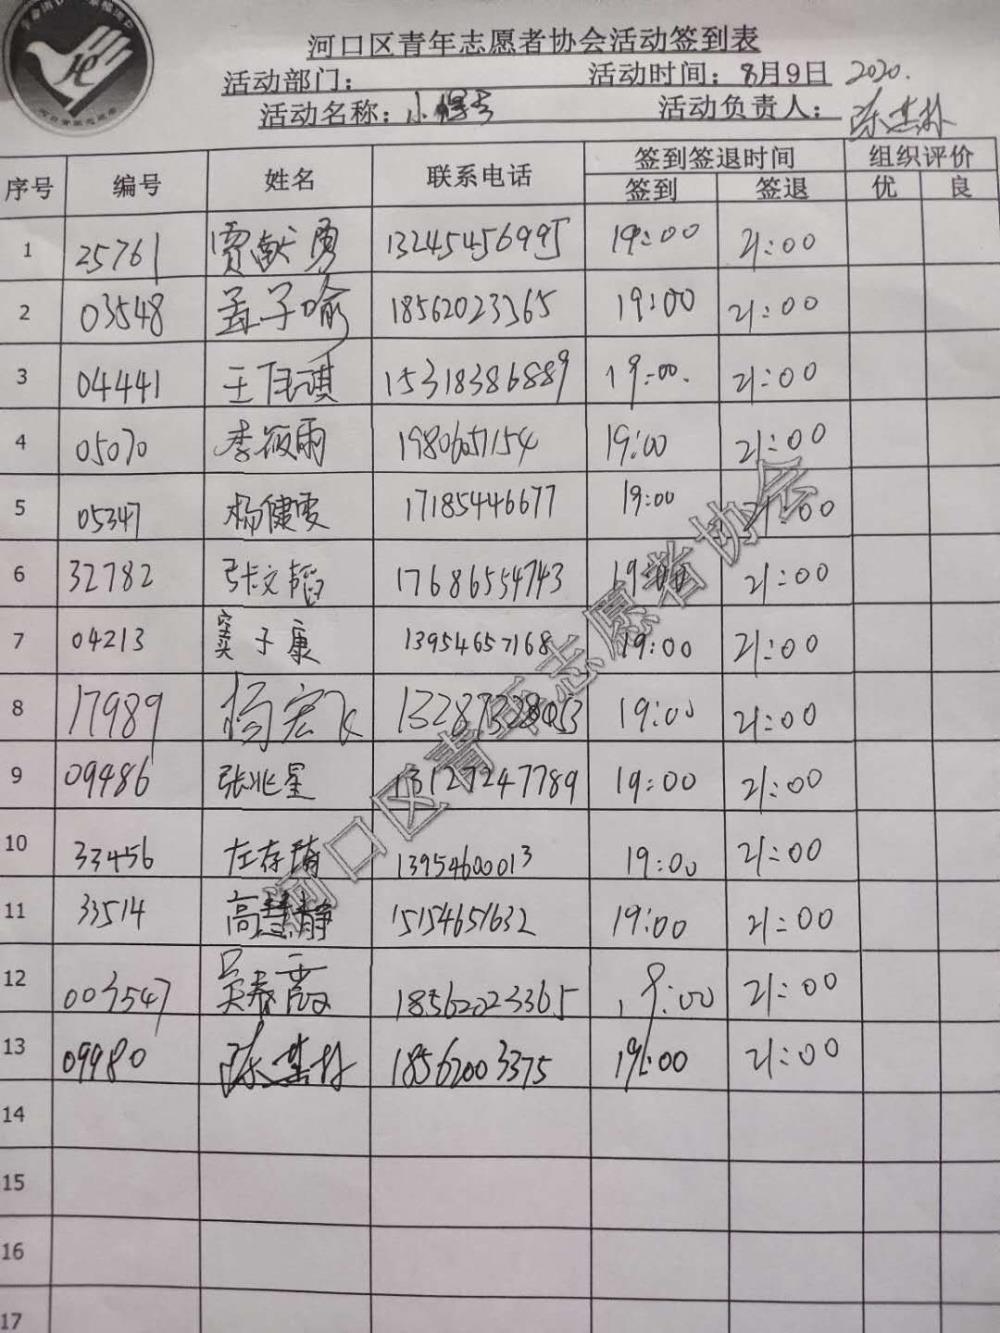 河口区青年志愿者协会活动签到表
活动部门： 活动时间：8月9日 2020.
活动名称：小 活动负责人：陈其林
序号 编号 姓名 联系电话 签到签退时间 组织评价
签到 签退 优 良
1 25761 贾献勇 13245456995 19:00 21:00
2 03548 孟子喻 18562023365 19:00 21:00
3 04441 王伍琪 15318386889 19:00. 21:00
4 05070 李筱雨 19806051154 19:00 21:00
5 05347 杨健雯 17185446677 19:00 21:00
6 32782 张文韬 17686554743 19:00 21:00
7 04213 窦子康 13954657168 19:00 21:00
8 17989 杨宏飞 13287328053 19:00 21:00
9 09486 张兆星 13127247789 19:00 21:00
10 33456 左存 13954600013 19:00 21:00
11 33514 高慧静 15154651632 19:00 21:00
12 003547 吴春霞 18562023365 19:00 21:00
13 09980 陈其林 18562003375 19:00 21:00
14
15
16
17
河口区青年志愿者协会